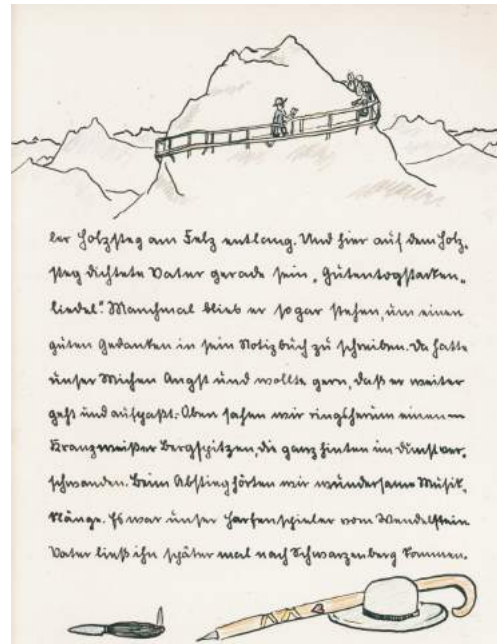 ler Holzsteg am Fels entlang. Und hier auf dem Holz-
steg dichtete Vater gerade sein „Gutentagstarken-
liedel“. Manchmal blieb er sogar stehen, um einen
guten Gedanken in sein Notizbuch zu schreiben. Da hatte
unser Michen Angst und wollte gern, daß er weiter
geht und aufpaßt. Oben sahen wir ringsherum einen
Kranz weißer Bergspitzen, die ganz hinten im Dunst ver-
schwanden. Beim Abstieg hörten wir wundersame Musik-
klänge. Es war unser Harfenspieler vom Wendelstein
Vater ließ ihn später mal nach Schwarzenberg kommen.